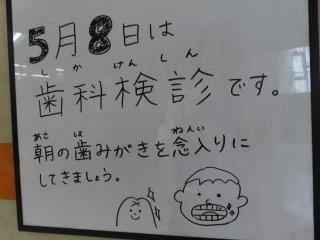 5月8日は
しかけんしん
歯科検診です。
あさ は ねんい
朝の歯みがきを念入りに
してきましょう。